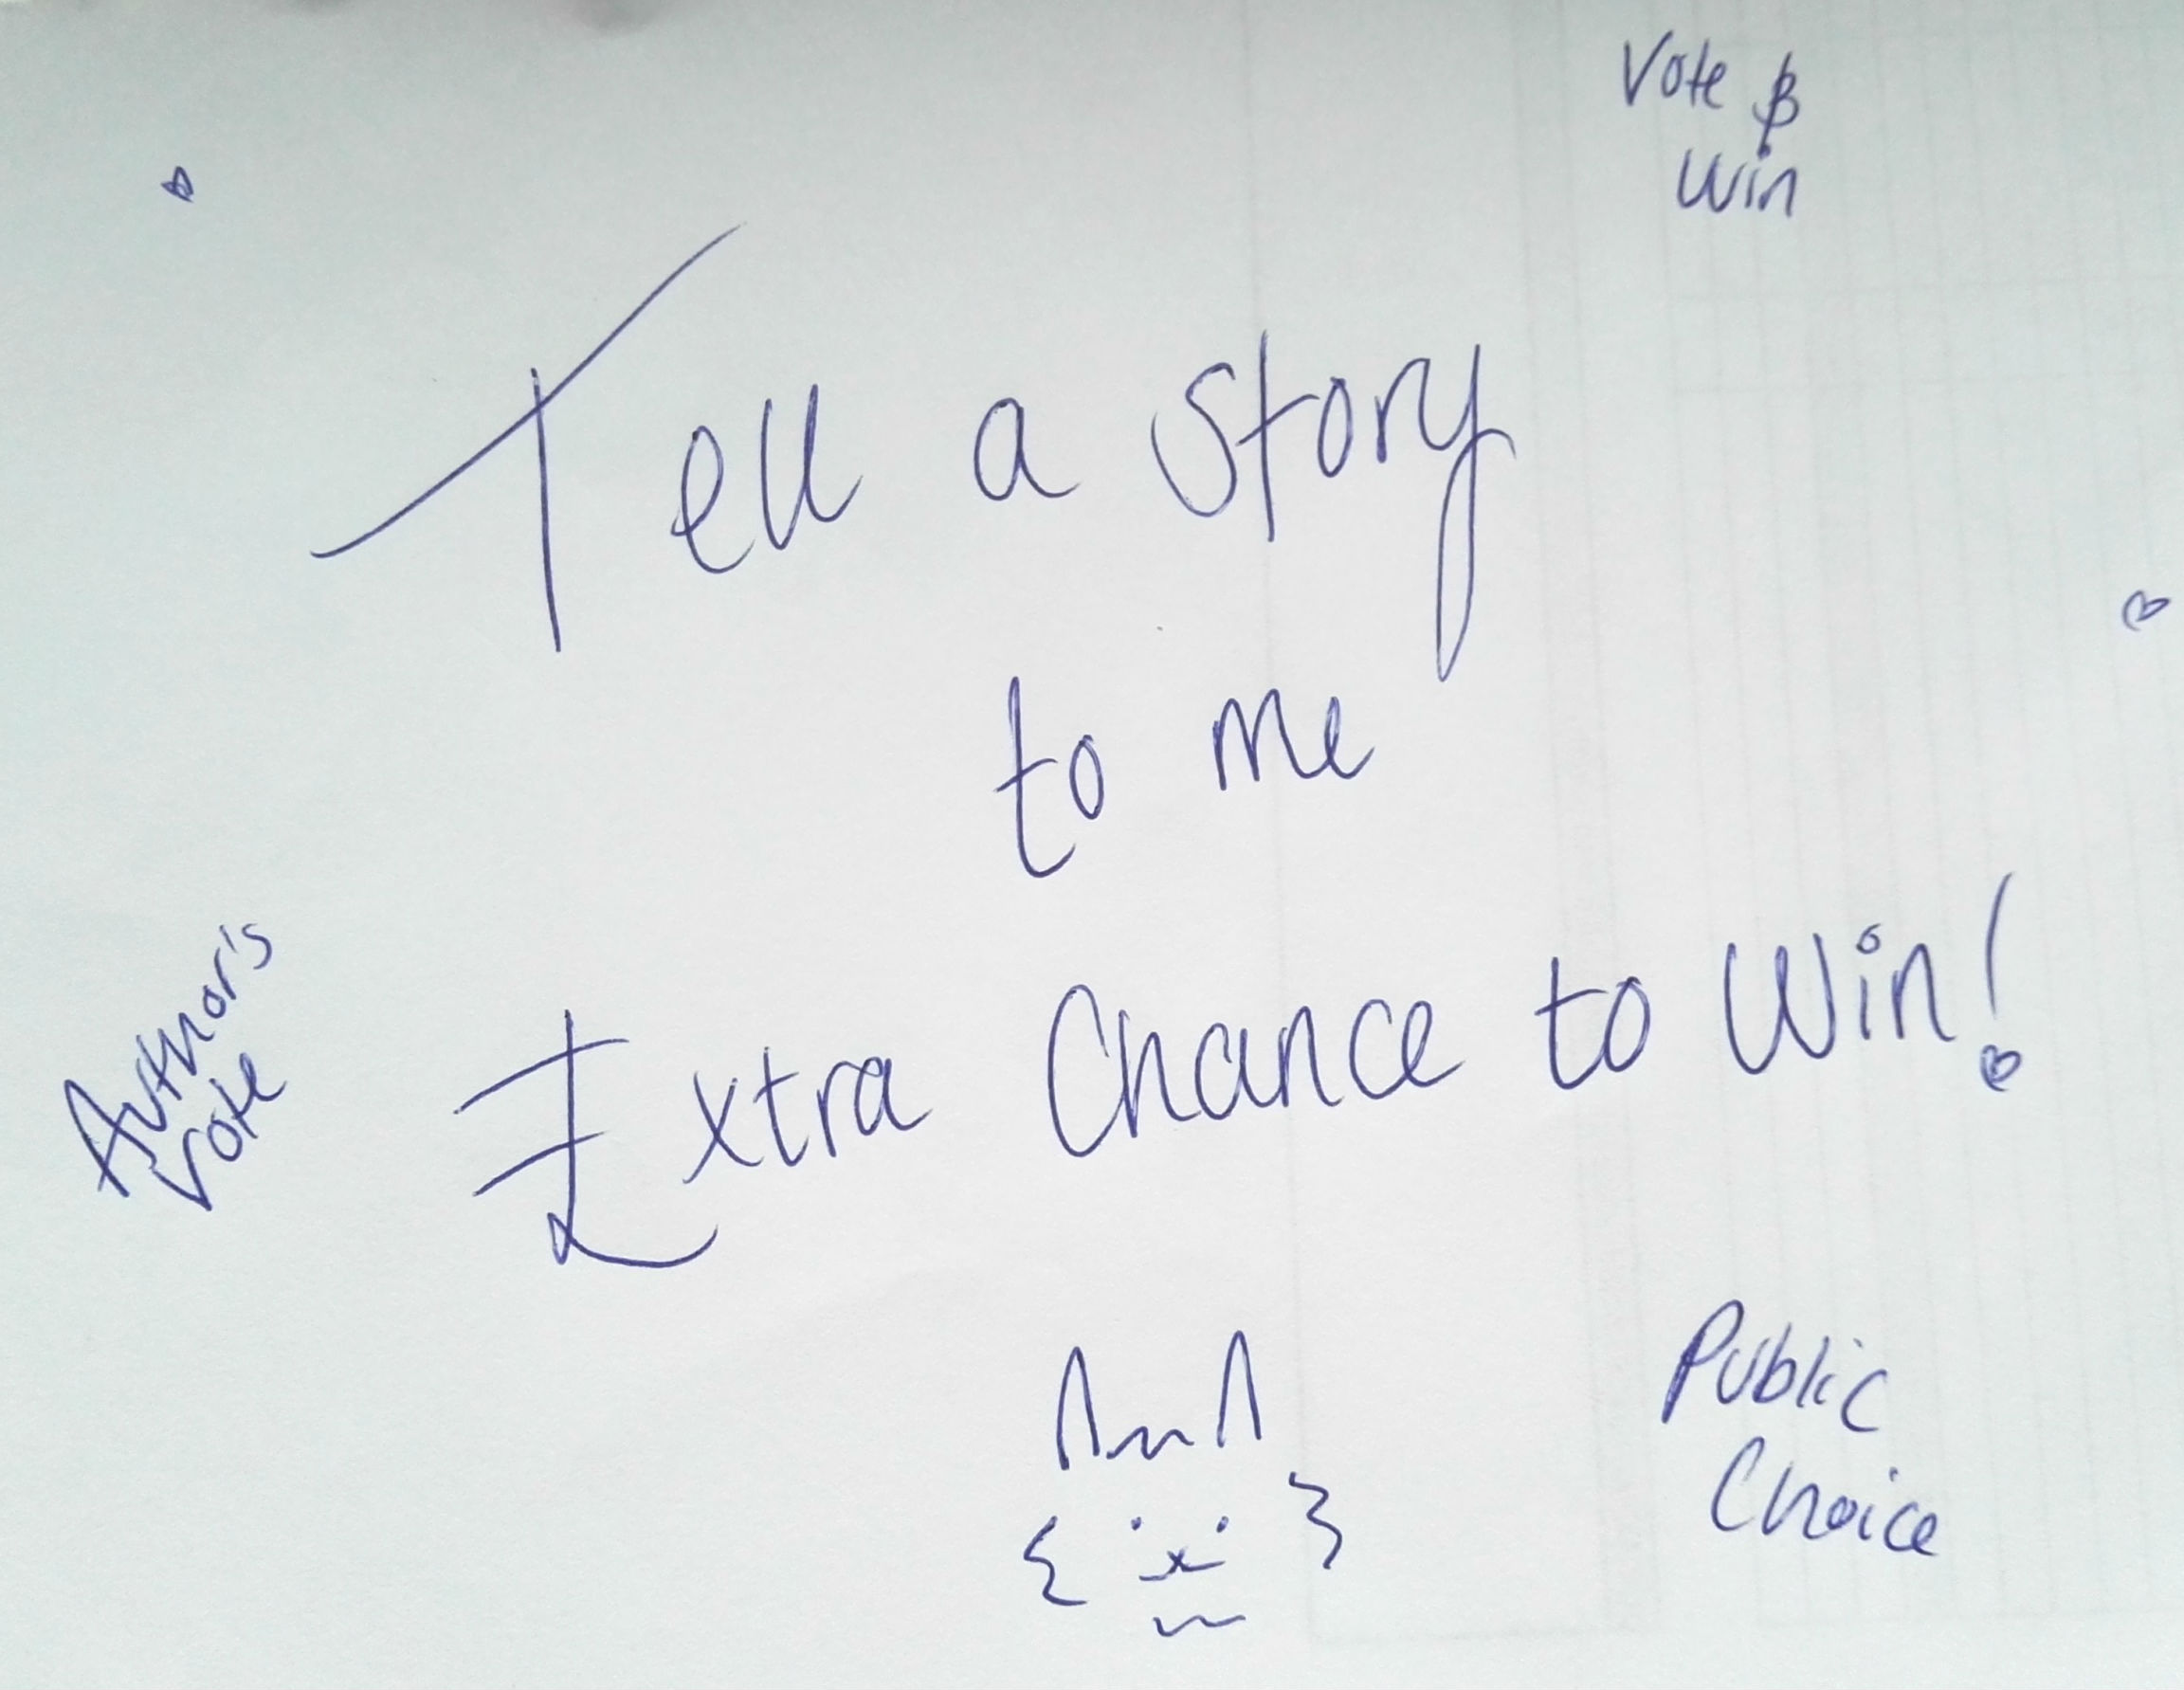 Vote &
Win
Tell a story
to me
Extra Chance to Win!
Author's
Vote
Public
Choice